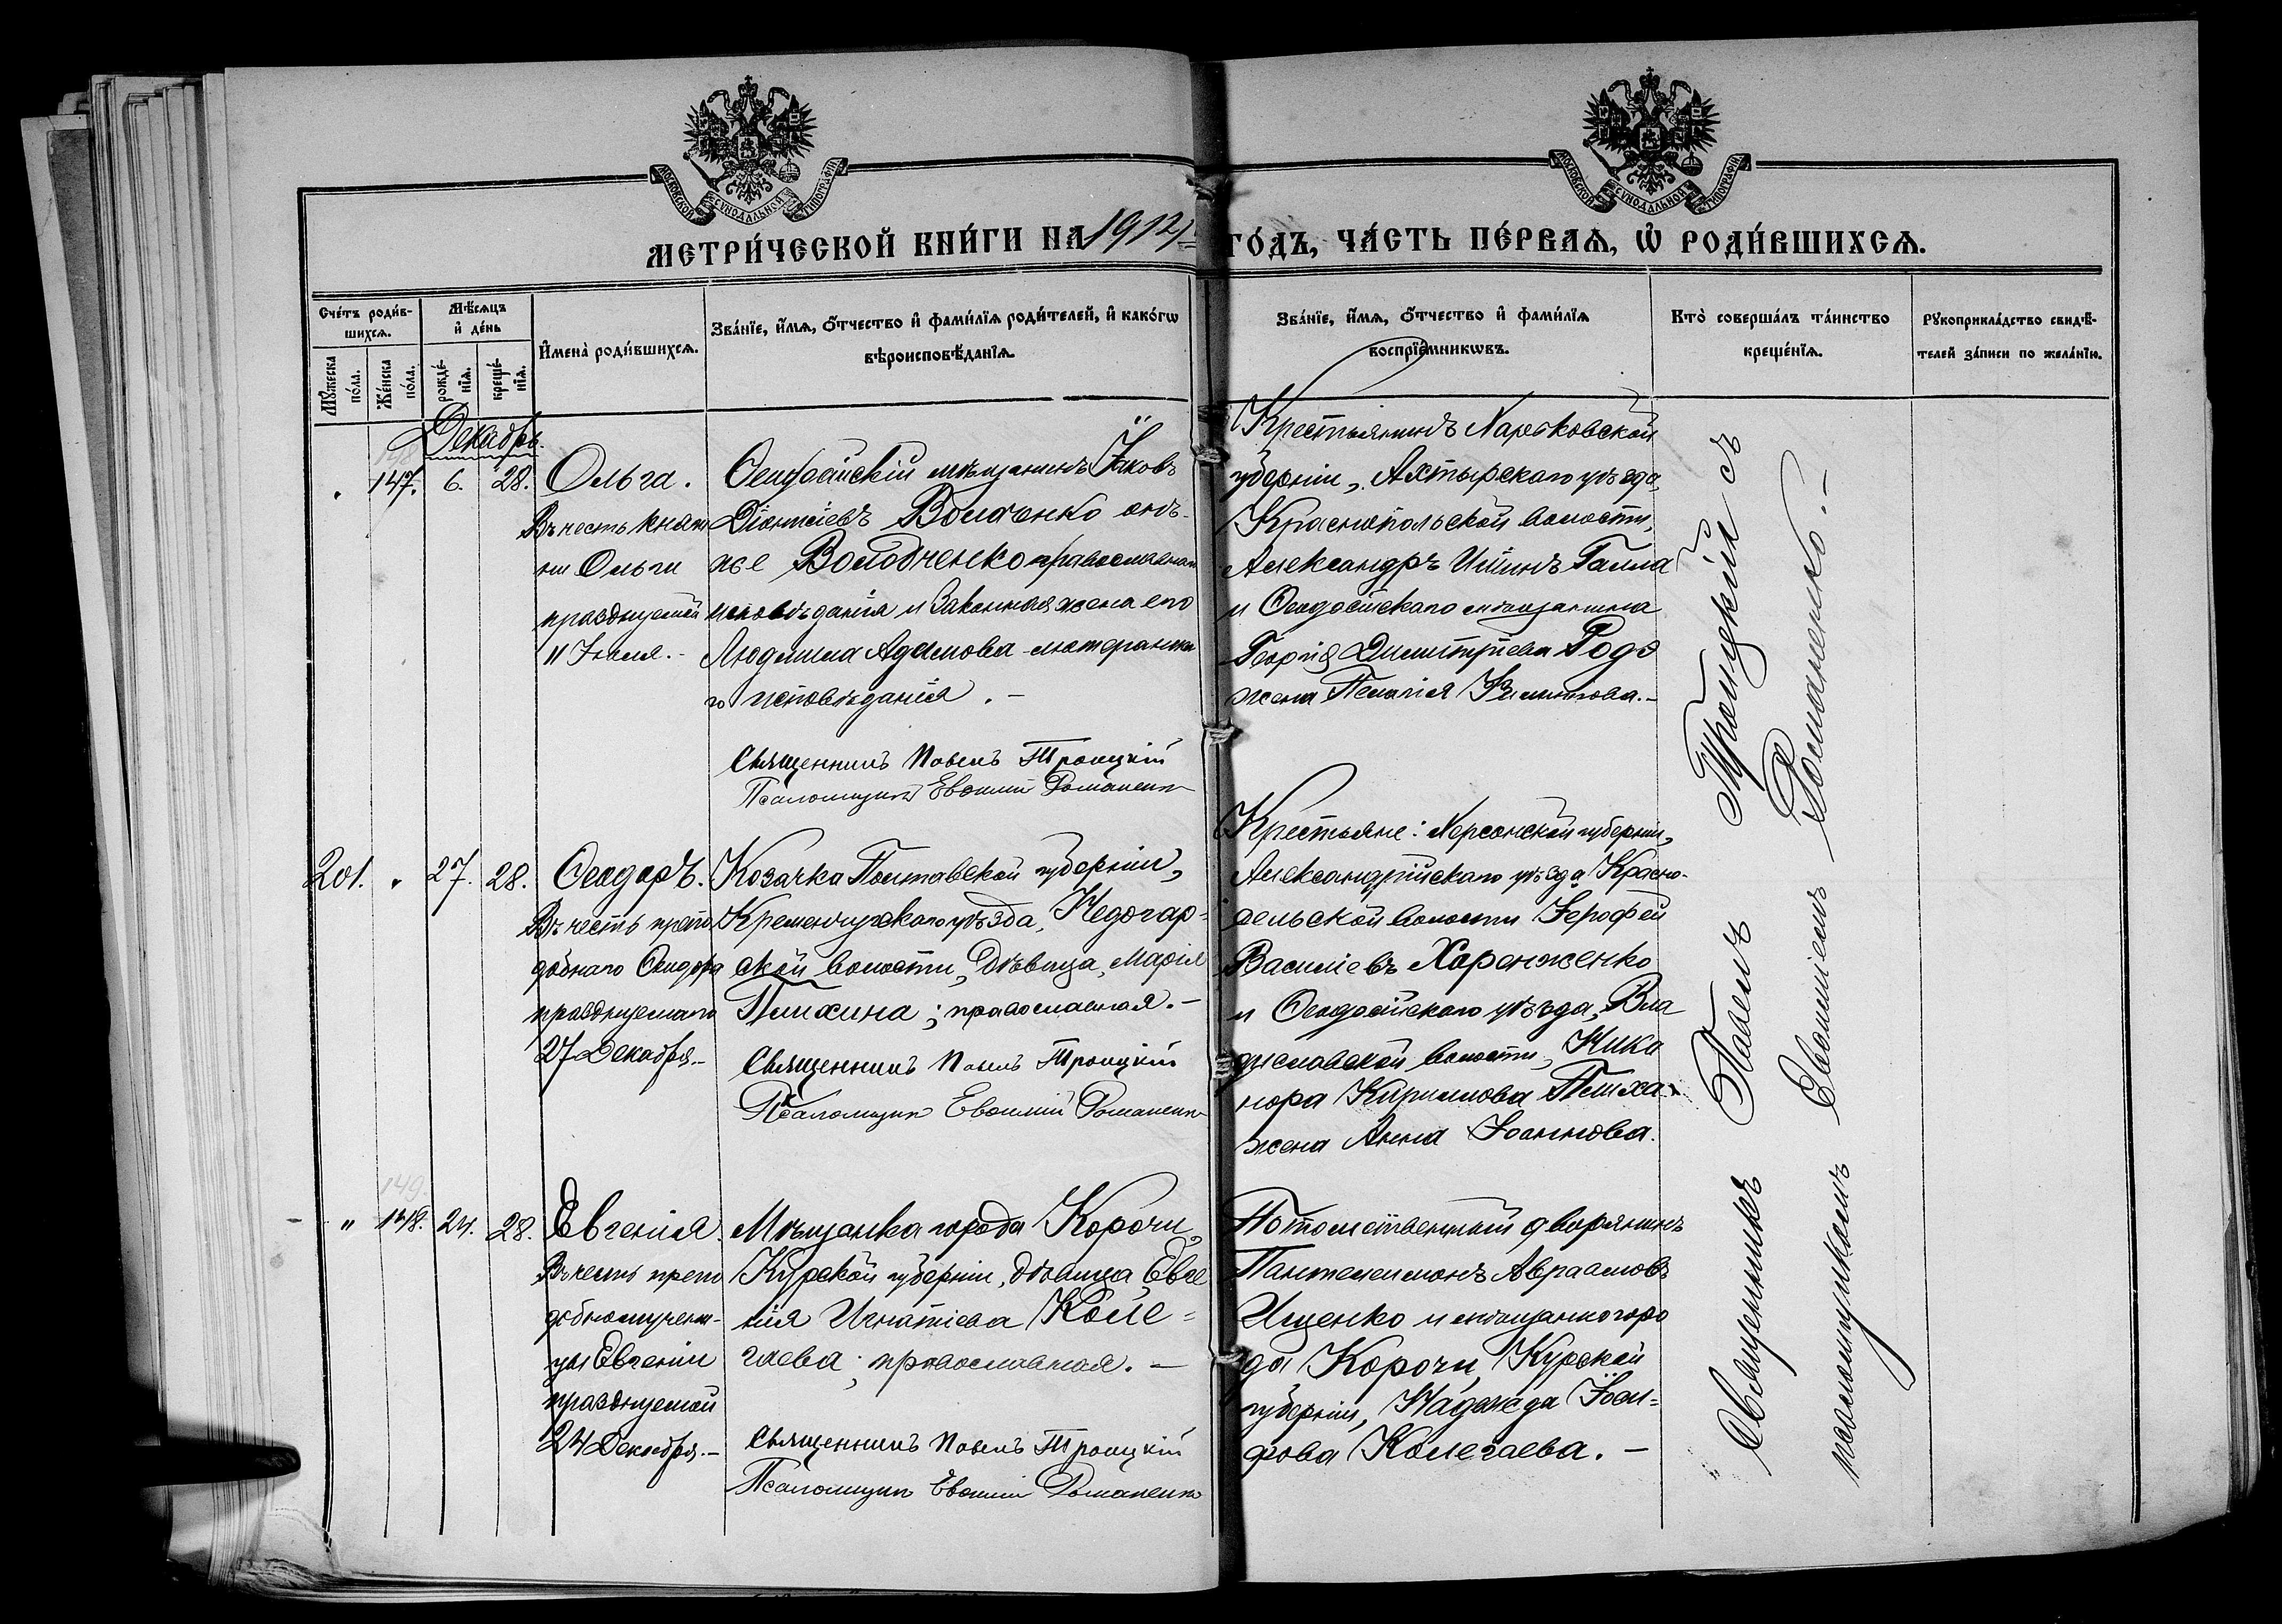 МОСКОВСКОЙ СУНОДАЛЬНОЙ ТИПОГРАФІИ
МОСКОВСКОЙ СУНОДАЛЬНОЙ ТИПОГРАФІИ
МЕТРИ́ЧЕСКОЙ КНИ́ГИ НА 1912
ГО́ДЪ, ЧА́СТЬ ПЕ́РВАѦ, Ѽ РОДИ́ВШИХСѦ.
Сче́тъ роди́в-
шихсѧ.
Мѣ́сѧцъ
и҆ де́нь
Мꙋ́жеска
по́ла.
Же́нска
по́ла.
рожде́-
нїѧ.
креще́-
нїѧ.
И҆мена̀ роди́вшихсѧ.
Зва́нїе, и҆́мѧ, ѻ҆́тчество и҆ фами́лїѧ роди́телей, и҆ како́гѡ
вѣроисповѣ́данїѧ.
Зва́нїе, и҆́мѧ, ѻ҆́тчество и҆ фами́лїѧ
воспрїе́мникѡвъ.
Кто̀ соверша́лъ та́инство
креще́нїѧ.
Рꙋкоприкла́дство свидѣ́-
телей за́писи по жела́нїю.
Декабрь.
147. 6. 28.
Ольга.
Въ честь княги
ни Ольги
празднуемой
11 Іюля.-
Ѳеодосійскій мѣщанинъ Іаковъ
Діонисіевъ Волоченко онъ-
же Володченко православнаго
исповѣданія и законная жена его
Людмила Адамова лютеранска
го исповѣданія.-
Священникъ Павелъ Троицкій
Псаломщикъ Евѳимій Романенко
Крестьянинъ Харьковской
губерніи, Ахтырскаго уѣзда,
Краснопольской волости,
Александръ Ильинъ Галла
и Ѳеодосійскаго мѣщанина
Георгія Димитріева Родз
жена Пелагія Филиппова.-
201. " 27. 28.
Ѳеодоръ.
Въ честь препо
добнаго Ѳеодора
празднуемаго
27 Декабря.-
Козачка Полтавской губерніи,
Кременчугскаго уѣзда, Недогар-
ской волости, дѣвица, Марія
Плихина; православная.-
Священникъ Павелъ Троицкій
Псаломщикъ Евѳимій Романенко
Крестьяне: Херсонской губерніи,
Александрійскаго уѣзда Красно-
сельской волости Іероѳей
Василіевъ Харенженко
и Ѳеодосійскаго уѣзда, Вла
диславской волости, Ника
нора Кириллова Плиха
жена Анна Іоаннова.
149.
" 148. 24. 28.
Евгенія.
Въ честь препо
добномучени-
цы Евгеніи
празднуемой
24 Декабря.-
Мѣщанка города Корочи,
Курской губерніи, дѣвица Евге
нія Игнатіева Коле-
гаева; православная.-
Священникъ Павелъ Троицкій
Псаломщикъ Евѳимій Романенко
Потомственный дворянинъ
Пантелеимонъ Авраамовъ
Ищенко и мѣщанка горо
да Корочи, Курской
губерніи, Надежда Іоси-
фова Колегаева.-
Священникъ Павелъ Троицкій съ
псаломщикомъ Евѳиміемъ Романенко.-